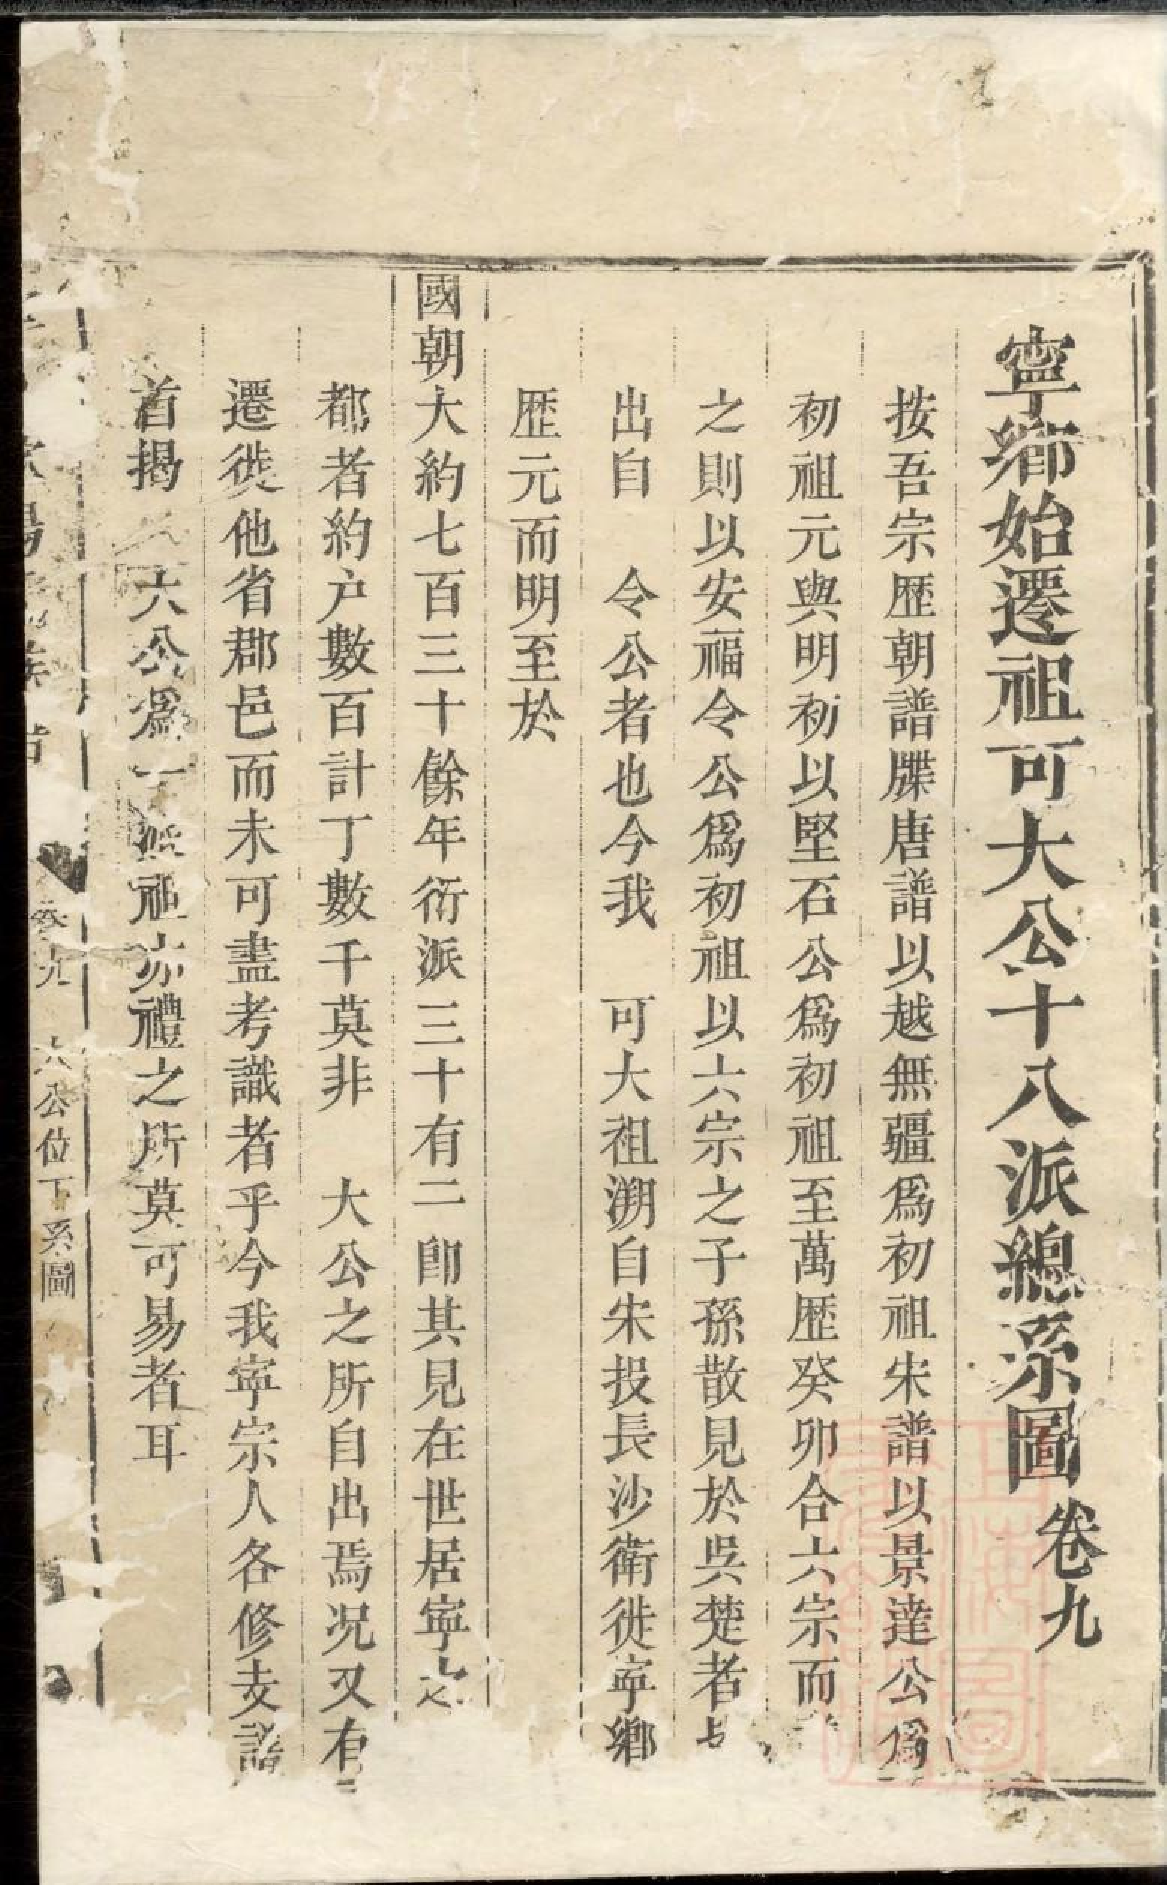 寧鄉始遷祖可大公十八派總系圖卷九
按吾宗歷朝譜牒唐譜以越無疆爲初祖宋譜以景達公爲
初祖元與明初以堅石公爲初祖至萬歷癸卯合六宗而
之則以安福令公爲初祖以六宗之子孫散見於吳楚者
出自　令公者也今我　可大祖溯自朱投長沙衛徙寧鄉
歷元而明至於
國朝大約七百三十餘年衍派三十有二卽其見在世居寧
都者約户數百計丁數千莫非　大公之所自出焉况又有
遷徙他省郡邑而未可盡考識者乎今我寧宗人各修支譜
首揭　大公爲一 祖亦禮之所莫可易者耳
卷九　大公位下系圖